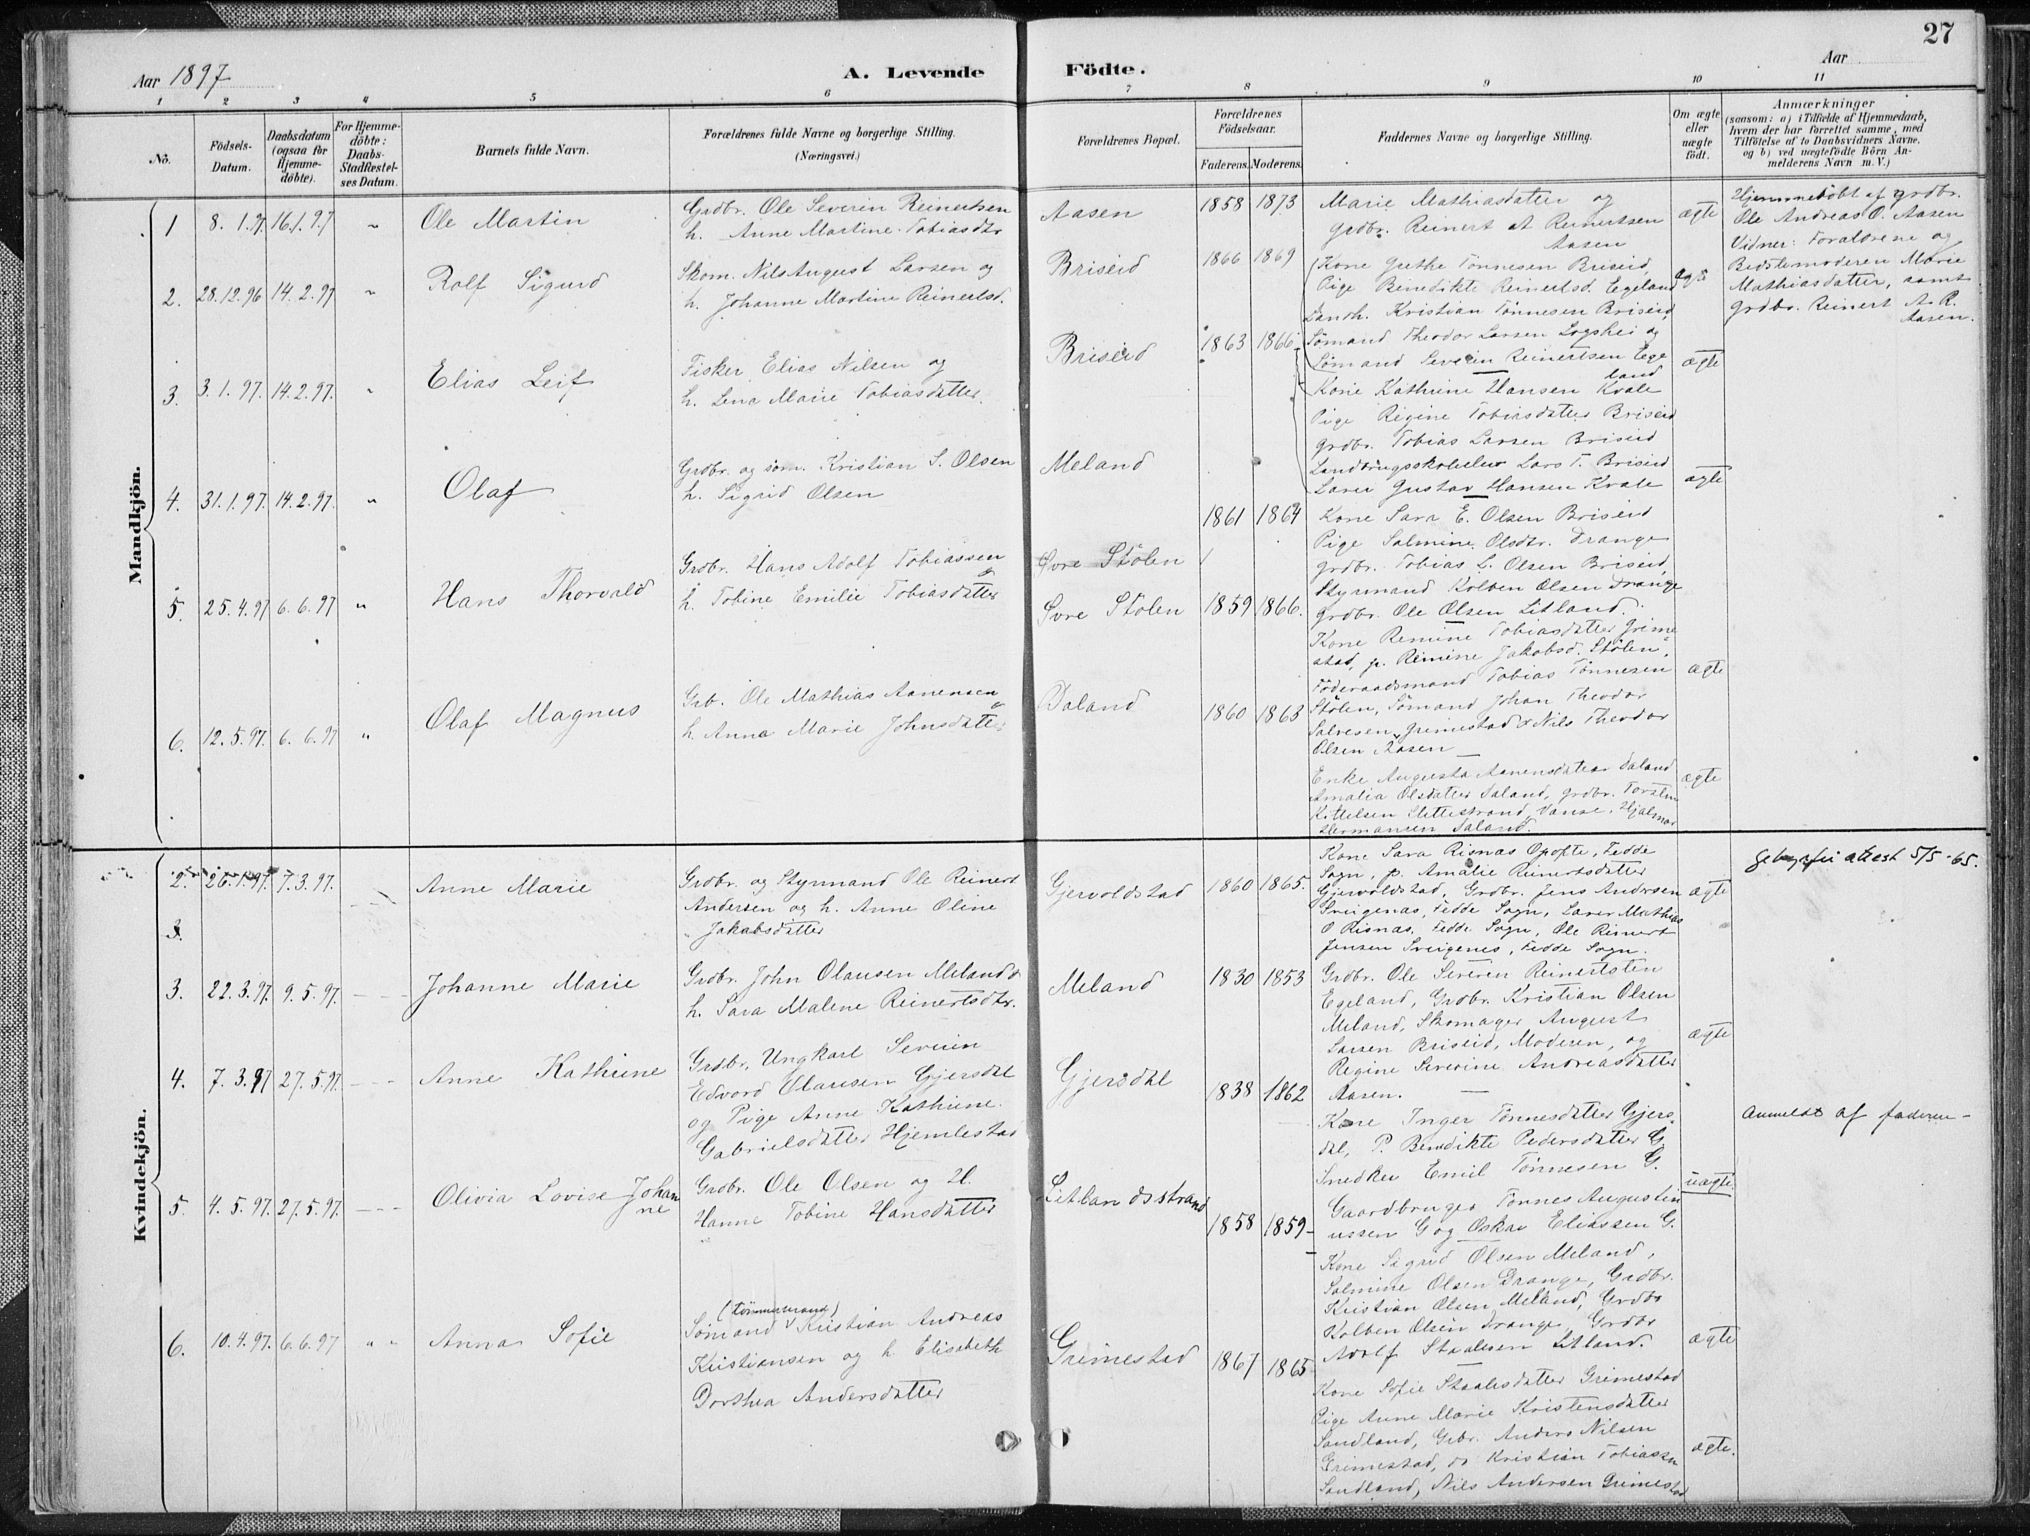 27
Aar 1897
A. Levende
Födte.
Aar
1 2 3 4 5 6 7 8 9 10 11
No.
Födsels-Datum.
Daabsdatum (ogsaa for Hjemme-döbte).
For Hjemme-döbte: Daabs-Stadfæstel-ses Datum.
Barnets fulde Navn.
Forældrenes fulde Navne og borgerlige Stilling.
(Næringsvei.)
Forældrenes Bopæl.
Forældrenes Födselsaar.
Faderens. Moderens.
Faddernes Navne og borgerlige Stilling.
Om ægte eller uægte födt.
Anmærkninger
(saasom: a) i Tilfælde af Hjemmedaab,
hvem der har forrettet samme, med
Tilföielse af to Daabsvidners Navne,
og b) ved uægtefödte Börn An-
melderens Navn m. V.)
Mandkjön.
1 8. 1. 97. 16. 1. 97 " Ole Martin
Grdbr. Ole Severin Reinertsen
h. Anne Martine Tobiasdtr
Aasen 1858 1873
Marie Mathiasdatter og
grdbr. Reinert A Reinertsen
Aasen
ægte
Hjemmedøbt af grdbr.
Ole Andreas O. Aasen
Vidner: Forældrene og
Bedstemoderen Marie
Mathiasdatter, samt
grdbr. Reinert A. R.
Aasen.
2. 28.12.96 14. 2. 97 " Rolf Sigurd
Skom. Nils August Larsen og
h. Johanne Martine Reinertsd.
Briseid 1866 1869
Kone Grethe Tønnesen Briseid,
Pige Benedikte Reinertsd. Egeland
Landh. Kristian Tønnesen Briseid
Sømand Theodor Larsen Logshei og
Sømand Severin Reinertsen Ege
land
ægte
3. 3. 1. 97. 14. 2. 97. " Elias Leif
Fisker Elias Nilsen og
h. Lena Marie Tobiasdatter.
Briseid 1863 1866
Kone Kathrine Hansen Kvale
Pige Regine Tobiasdatter Briseid
grdbr. Tobias Larsen Briseid
Landbrugsskoleelev Lars T. Briseid
Lærer Gustav Hansen Kvale
ægte
4. 31. 1. 97. 14. 2. 97. " Olaf
Grdbr. og søm. Kristian S. Olsen
h. Sigrid Olsen
Meland 1861 1864
Kone Sara E. Olsen Briseid
Pige Salmine Olsdtr. Drange
grdbr. Tobias L. Olsen Briseid,
Styrmand Kolben Olsen Drange
grdbr. Ole Olsen Litland.
ægte
5. 25. 4. 97 6. 6. 97 " Hans Thorvald
Grdbr. Hans Adolf Tobiassen
h. Tobine Emilie Tobiasdatter
Øvre Stølen
Øvre Stølen 1859 1866.
Kone Remine Tobiasdatter Grime
stad, p. Remine Jakobsd. Stølen,
Föderaadsmand Tobias Tønnesen
Stølen, Sømand Johan Theodor
Salvesen, Grimestad & Nils Theodor
Olsen Aasen
ægte
6. 12. 5. 97. 6. 6. 97 " Olaf Magnus
Grb. Ole Mathias Aanensen
h. Anna Marie Johnsdatter
Daland 1860 1863
Enke Augusta Aanensdatter Daland
Amalia Olsdatter Daland, grdbr. Torsten
Kittelsen Slettestrand, Vanse. Hjalmar
Hermansen Daland.
ægte
Kvindekjön.
2. 26. 1. 97. 7. 3. 97. Anne Marie
Grdbr. og Styrmand Ole Reinert
Andersen og h. Anne Oline
Jakobsdatter
Gjervoldstad 1860 1865.
Kone Sara Risnas Opofte, Fedde
Sogn, p. Amalie Reinertsdatter
Gjervoldstad, Grdbr. Jens Andersen
Sveigenas, Fedde Sogn, Lærer Mathias
O Risnas, Fedde Sogn, Ole Reinert
Jensen Sveigenes, Fedde Sogn.
ægte
attest 5/5-65.
3.
3. 22. 3. 97. 9. 5. 97. Johanne Marie
Grdbr. John Olausen Meland &
h. Sara Malene Reinertsdtr.
Meland 1830 1853
Grdbr. Ole Severin Reinertsten
Egeland, Grdbr. Kristian Olsen
Meland, Skomager August
Larsen Briseid, Moderen, og
Regine Severine Andreasdatter
Aasen.
ægte
4. 7. 3. 97 27. 5. 97. Anne Kathrine
Grdbr., Ungkarl Severin
Edvard Olausen Gjersdal
og Pige Anne Kathrine
Gabrielsdatter Hjemlestad
Gjersdal 1838 1862
Kone Inger Tønnesdatter Gjers
dal, P. Benedikte Pedersdatter G
Snedker Emil Tønnesen G.
Gaardbruger Tønnes Augustin
ussen G og Oskar Eliassen G.
uægte
Anmeldt af faderen-
5. 4. 5. 97. 27. 5. 97. Olivia Lovise Johan
ne
Grdbr. Ole Olsen og H.
Hanne Tobine Hansdatter
Litlandsstrand 1858 1859
Kone Sigrid Olsen Meland,
Salmine Olsen Drange, Grdbr.
Kristian Olsen Meland, Grdbr
Kolben Olsen Drange, Grdbr
Adolf Staalesen Litland.
ægte
6. 10. 4. 97. 6. 6. 97 " " Anna Sofie
(tømmermand)
Sømand Kristian Andreas
Kristiansen og h Elisabeth
Dorthea Andersdatter
Grimestad 1867 1865
Kone Sofie Staalesdatter Grimestad
Pige Anne Marie Kristensdatter
Sandland, Grbr. Anders Nilsen
Grimestad, do Kristian Tobiassen
Sandland, Nils Andersen Grimestad
ægte.